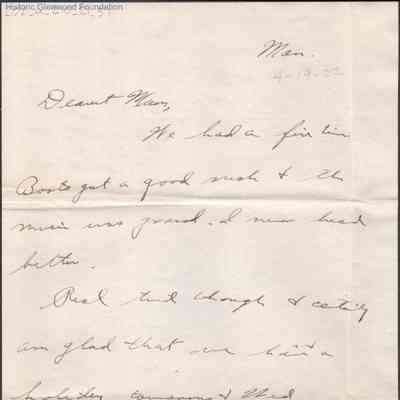 Historic Glenwood Foundation
Mon.
4-19-22
Dearest Mam,
We had a fine time
Boots got a good rush & the
music was grand. I never heard
better.
Real tired though & certainly
am glad that we have a
holiday tomorrow & Wed